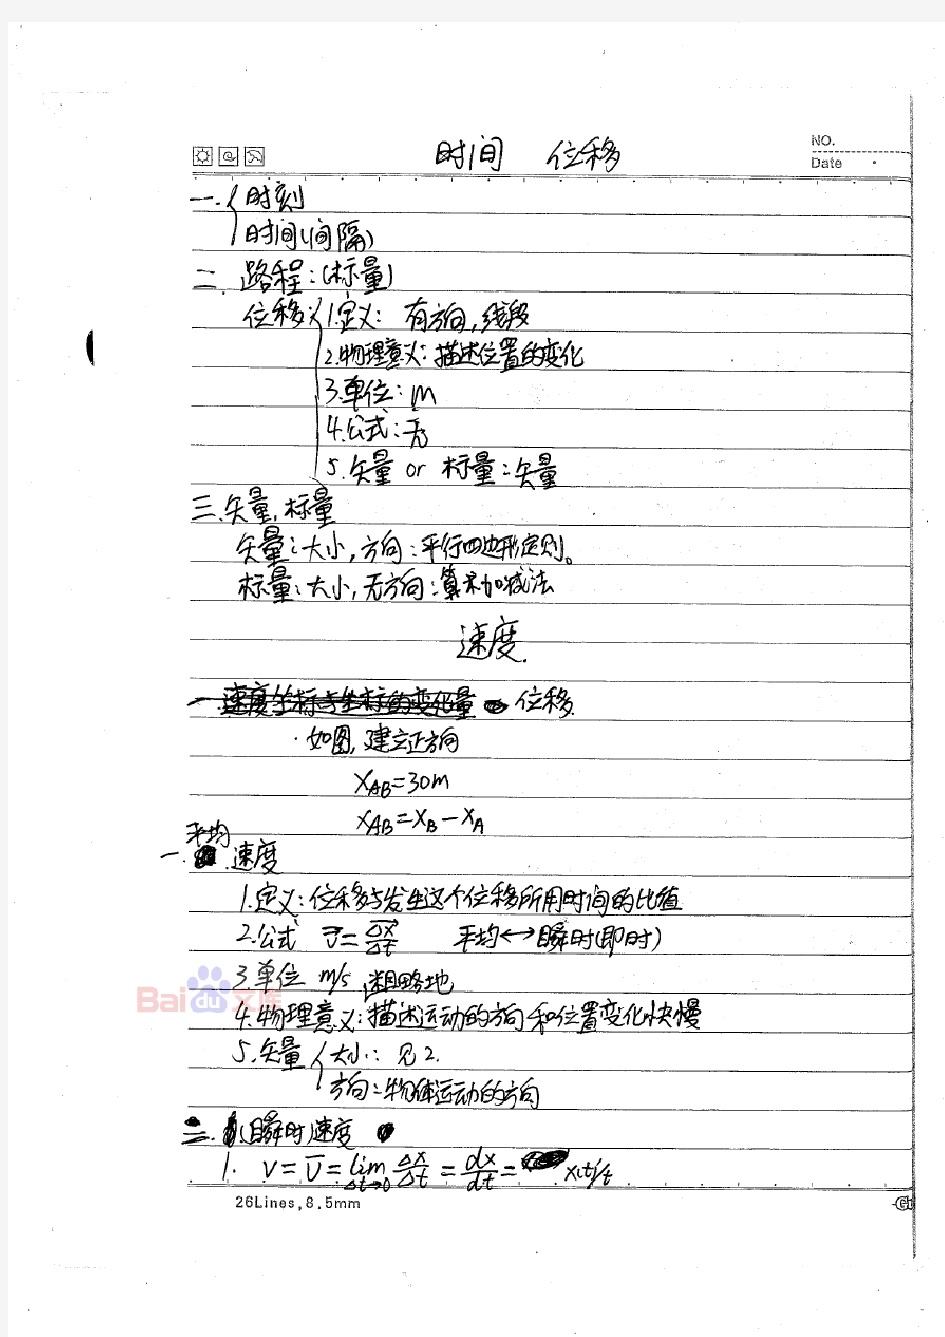 NO.
Date
时间 位移
一. 时刻
时间(间隔)
二. 路程:(标量)
位移: 1.定义: 有方向,线段
2.物理意义:描述位置的变化
3.单位: m
4.公式:无
5.矢量 or 标量:矢量
三.矢量,标量
矢量:大小,方向:平行四边形定则。
标量:大小,无方向:算术加减法
速度.
一.速度坐标与坐标的变化量 位移
·如图,建立正方向
XAB=30m
XAB=XB-XA
平均
一. 速度
1.定义:位移与发生这个位移所用时间的比值
2.公式 v̄=Δx/Δt 平均↔瞬时(即时)
3.单位 m/s 粗略地
Baidu文库
4.物理意义:描述运动的方向和位置变化快慢
5.矢量 大小:见2.
方向:物体运动的方向
二. (瞬时)速度
1. v=v̄=lim Δt→0 Δx/Δt=dx/dt=
26Lines,8.5mm